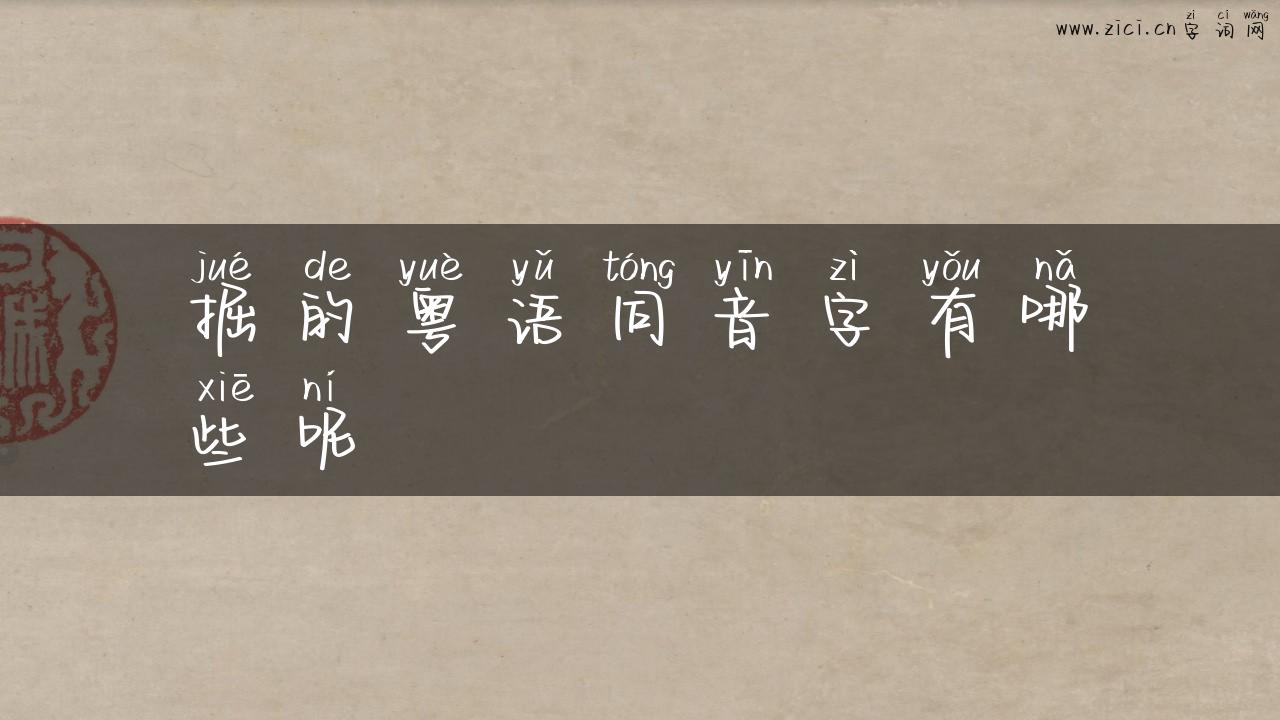 zì cí wǎng
www.zici.cn字词网
jué de yuè yǔ tóng yīn zì yǒu nǎ
掘的粤语同音字有哪
xiē ní
些呢